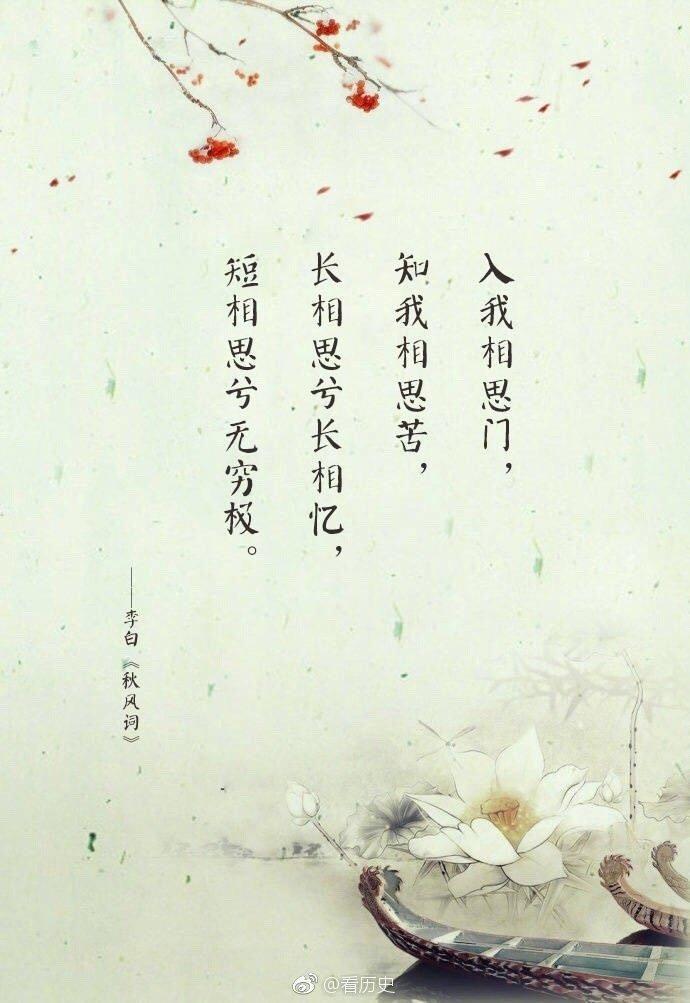 入我相思门，
知我相思苦，
长相思兮长相忆，
短相思兮无穷极。
——李白《秋风词》
@看历史